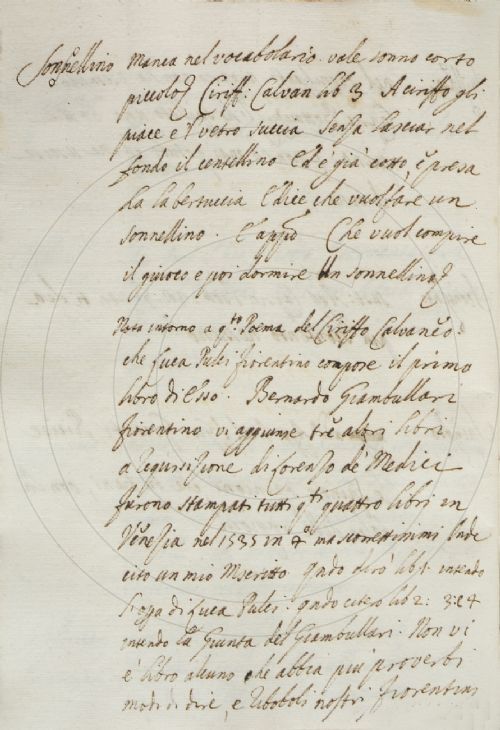 Sonnellino Manca nel vocabolario. vale sonno corto
piccolo. Ciriff: Calvan lib 3 A ciriffo gli
piace e il vetro succia Senza lasciar nel
fondo il centellino Ed è già cotto, e presa
ha la bertuccia E dice che vuol fare un
sonnellino. E app.o Che vuol compire
il giuoco e poi dormire Un sonnellino
Nota intorno a q.to Poema del Ciriffo Calvaneo:
che Luca Pulci fiorentino compose il primo
libro di esso. Bernardo Giambullari
fiorentino vi aggiunse tre altri libri
a requisizione di Lorenzo de Medici
furono stampati tutti q.ti quattro libri in
Venezia nel 1535 in 4.o ma scorrettissimi Onde
cito un mio Mscritto. Qndo dirò lib 1. intendo
di Luca Pulci: qndo citerò lib 2: 3: e 4
intendo la Giunta del Giambullari. Non vi
è libro alcuno che abbia più proverbi
modi di dire, e riboboli nostri fiorentini